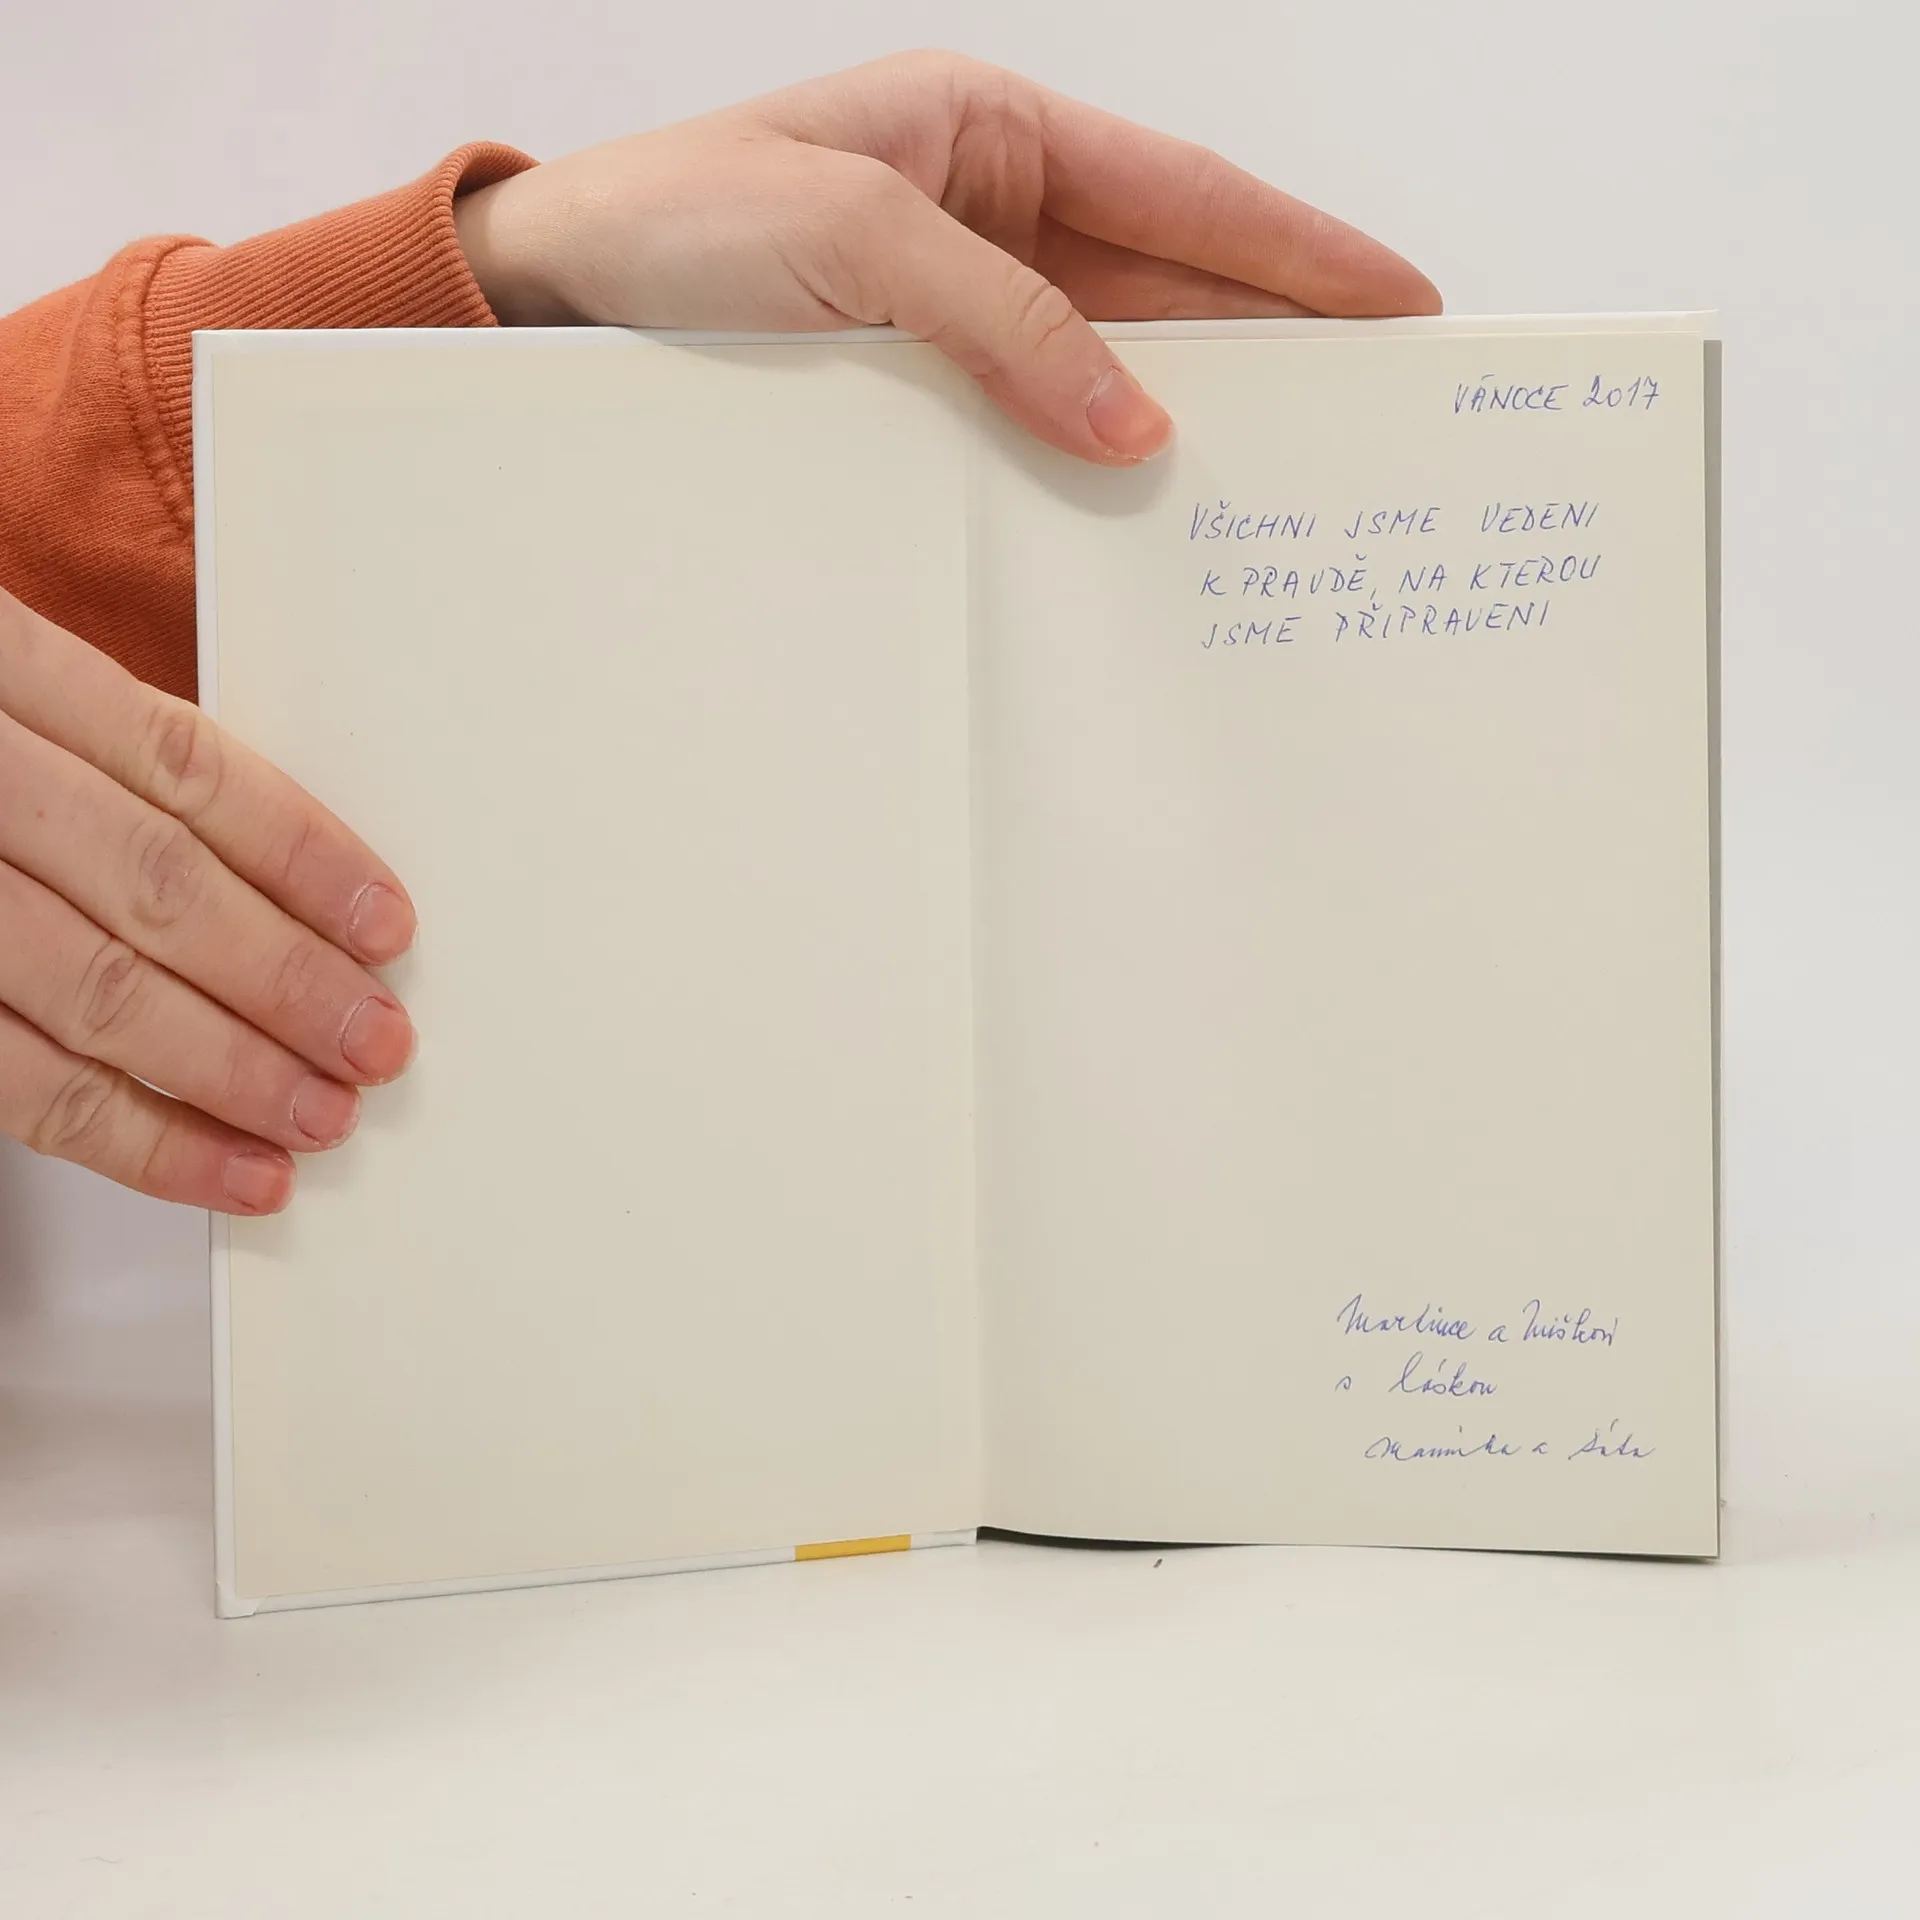 VÁNOCE 2017
VŠICHNI JSME VEDENI
K PRAVDĚ, NA KTEROU
JSME PŘIPRAVENI
Martince a Miškovi
s láskou
maminka a